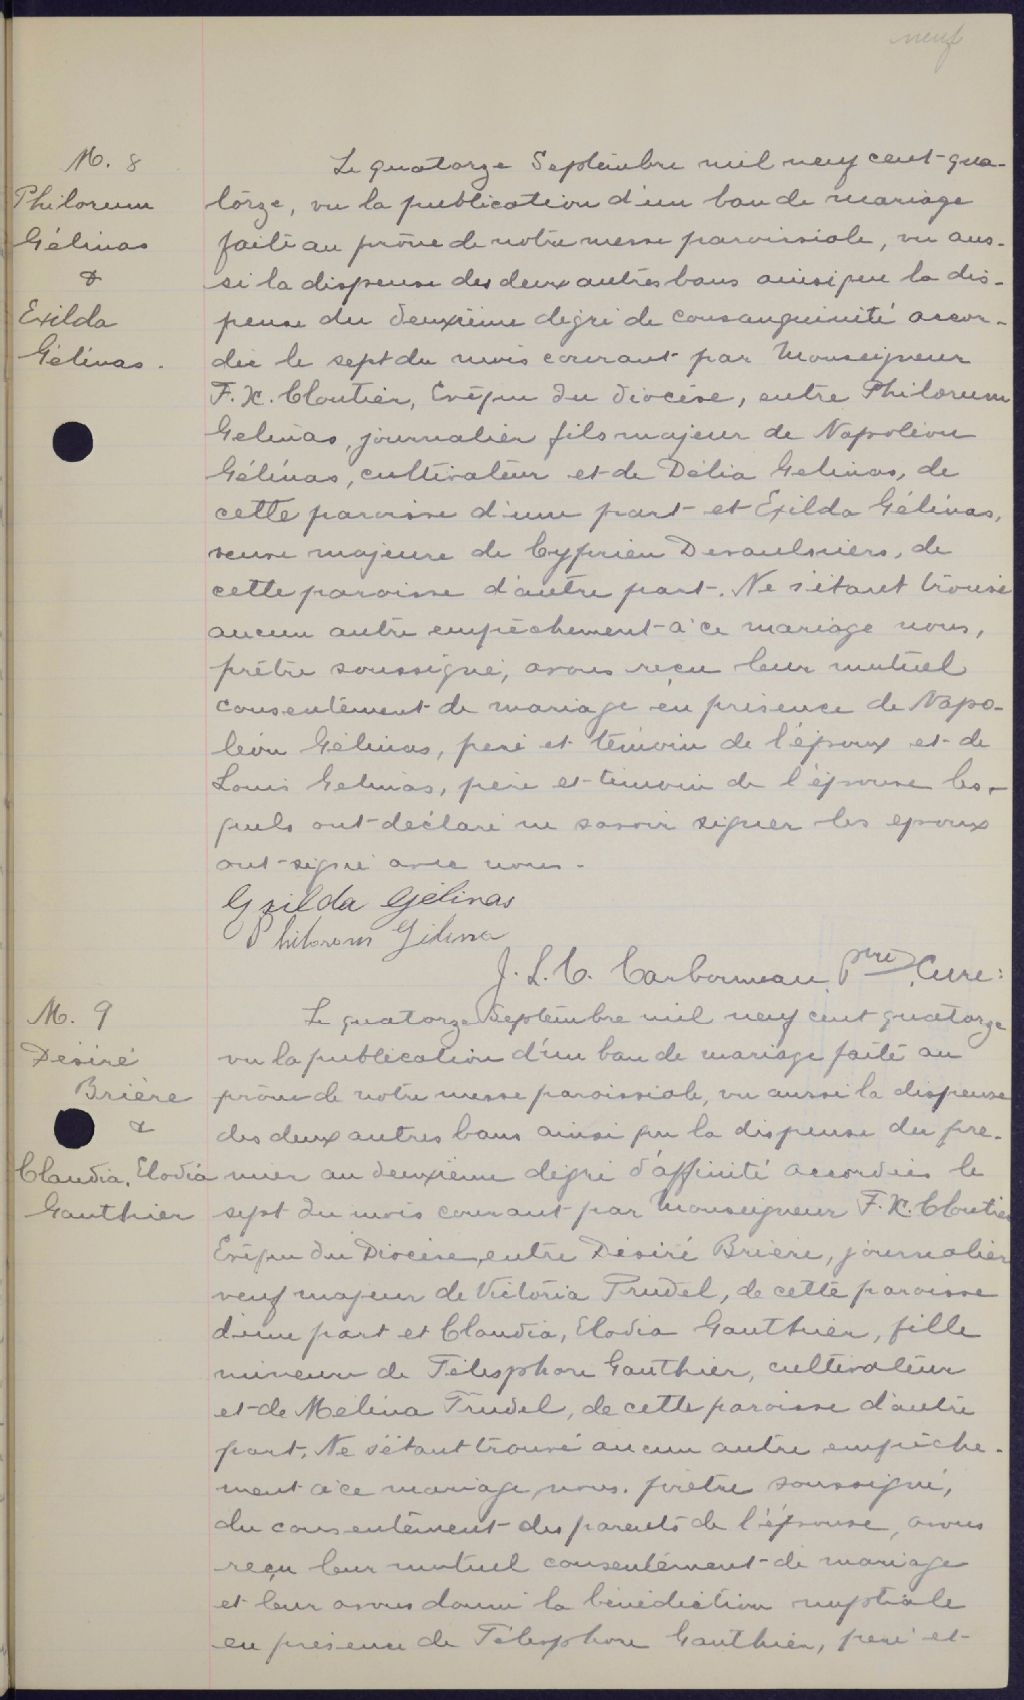 neuf
M. 8
Philorum
Gélinas
&
Exilda
Gélinas.
Le quatorze Septembre mil neuf cent-qua-
torze, vu la publication d'un ban de mariage
faite au prône de notre messe paroissiale, vu aus-
si la dispense des deux autres bans ainsi que la dis-
pense du deuxième degré de consanguinité accor-
dée le sept du mois courant par Monseigneur
F. X. Cloutier, Evêque du diocèse, entre Philorum
Gelinas, journalier fils majeur de Napoléon
Gélinas, cultivateur et de Délia Gelinas, de
cette paroisse d'une part et Exilda Gélinas,
veuve majeure de Cyprien Desaulniers, de
cette paroisse d'autre part. Ne s'étant trouvé
aucun autre empêchement à ce mariage nous,
prêtre soussigné, avons reçu leur mutuel
consentement de mariage en présence de Napo-
léon Gélinas, père et témoin de l'époux et de
Louis Gelinas, père et témoin de l'épouse les-
quels ont déclaré ne savoir signer les epoux
ont signé avec nous.
Exilda Gélinas
Philorum Gélinas
J. L. C. Carbonneau, Ptre, Cure:
M. 9
Désiré
Brière
&
Claudia, Elodia
Gauthier
Le quatorze Septembre mil neuf cent quatorze
vu la publication d'un ban de mariage faite au
prône de notre messe paroissiale, vu aussi la dispense
des deux autres bans ainsi que la dispense du pre-
mier au deuxième degré d'affinité accordées le
sept du mois courant par Monseigneur F. X. Cloutier
Evêque du Diocèse, entre Désiré Brière, journalier
veuf majeur de Victoria Trudel, de cette paroisse
d'une part et Claudia, Elodia Gauthier, fille
mineure de Télesphore Gauthier, cultivateur
et de Mélina Trudel, de cette paroisse d'autre
part. Ne s'étant trouvé aucun autre empêche-
ment à ce mariage, nous. prêtre soussigné,
du consentement des parents de l'épouse, avons
reçu leur mutuel consentement de mariage
et leur avons donné la bénédiction nuptiale
en présence de Télesphore Gauthier, père et